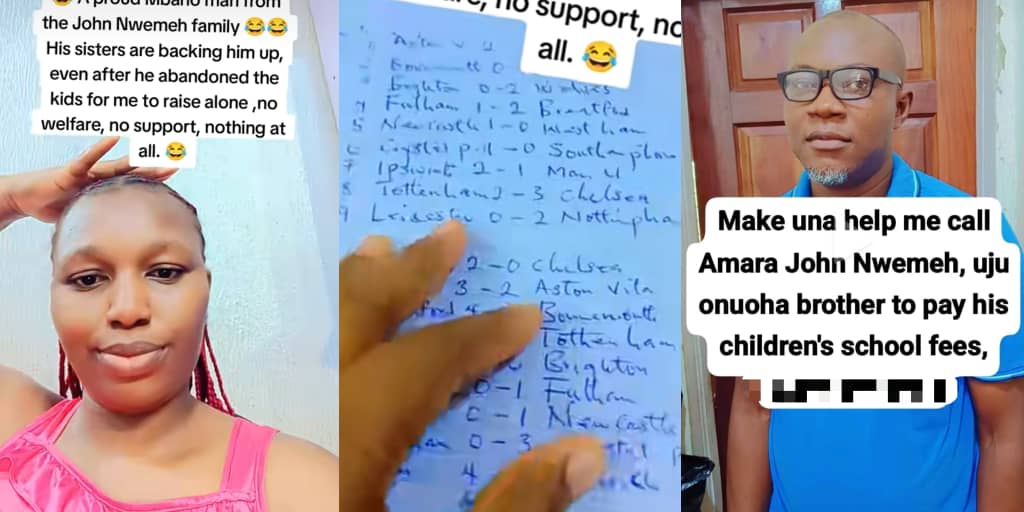 A proud Mbano man from
the John Nwemeh family 😂😂
His sisters are backing him up,
even after he abandoned the
kids for me to raise alone ,no
welfare, no support, nothing at
all. 😂
no support, no
all. 😂
Aston V 2
0
Brighton 0-2 Wolves
Fulham 1-2 Brentford
5 Newcastle 1-0 West ham
Crystal p. 11-0 Southampton
7 Ipswich 2-1 Man u
8 Tottenham 2-3 Chelsea
9 Leicester 0-2
2-0 Chelsea
3-2 Aston Villa
4
Tottenham
Brighton
0-1 Fulham
0-1 Newcastle
0-3
4
Make una help me call
Amara John Nwemeh, uju
onuoha brother to pay his
children's school fees,